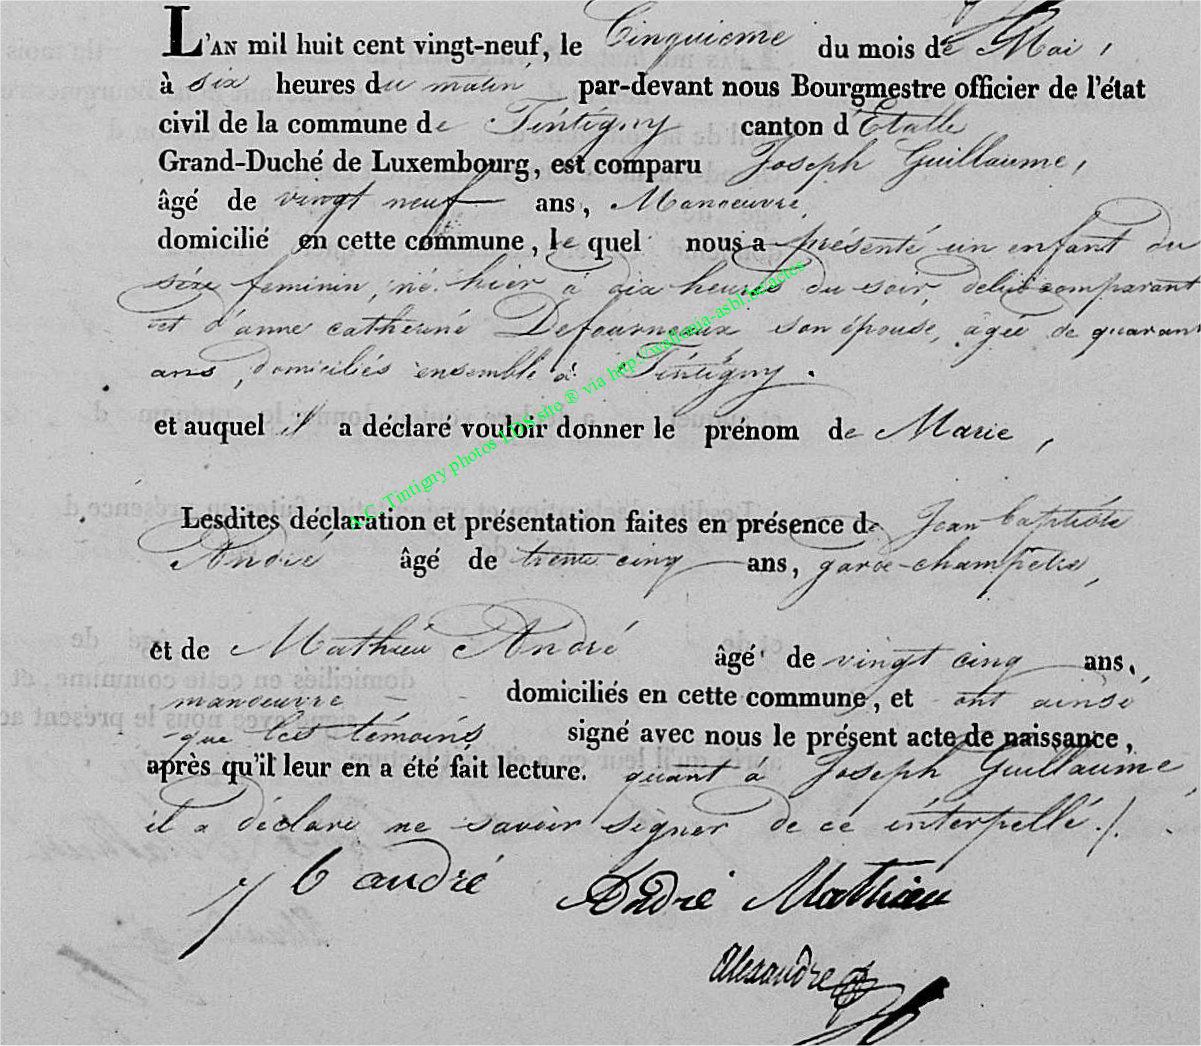 L'AN mil huit cent vingt-neuf, le Cinquieme du mois de Mai,
à six heures du matin par-devant nous Bourgmestre officier de l'état
civil de la commune de Tintigny canton d'Etalle
Grand-Duché de Luxembourg, est comparu Joseph Guillaume,
âgé de vingt neuf ans, Manoeuvre,
domicilié en cette commune, le quel nous a présenté un enfant du
sexe feminin, né hier à dix heures du soir, de lui comparant
et d'anne catherine Defourneaux son épouse, âgée de quarante
ans, domiciliés ensemble à Tintigny.
et auquel il a déclaré vouloir donner le prénom de Marie,
Lesdites déclaration et présentation faites en présence de Jean baptiste
André âgé de trente cinq ans, garde-champêtre,
et de Mathieu André âgé de vingt cinq ans,
manoeuvre domiciliés en cette commune, et ont ainsi
que les témoins signé avec nous le présent acte de naissance,
après qu'il leur en a été fait lecture. quant à Joseph Guillaume
il a déclaré ne savoir signer de ce interpellé./.
J b andré André Mathieu
alexandre
A.C. Tintigny photos LDS site ® via http://wallonia-asbl.be/actes